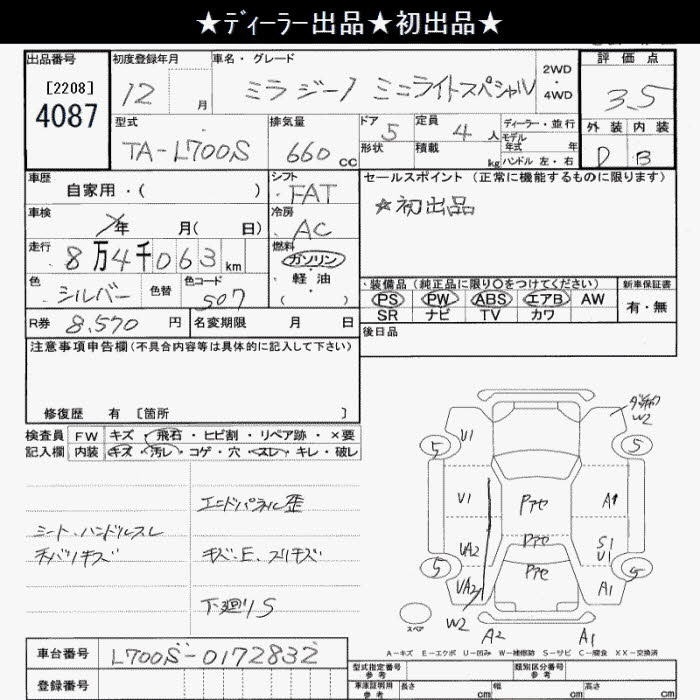 ★ディーラー出品★初出品★
出品番号 初度登録年月 車名・グレード 2WD・4WD 評価点
[2208]
4087
12 月 ミラジーノ ミニライトスペシャル 3.5
型式 排気量 ドア 定員 ディーラー・並行 外装 内装
TA-L700S 660 CC 5 4 人 モデル年式 年 D B
形状 積載 kg ハンドル 左・右
車歴 シフト セールスポイント (正常に機能するものに限ります)
自家用・( ) FAT
★初出品
車検 年 月( 日) 冷房 AC
走行 8万4千063 km 燃料 ガソリン・軽油 ( )
色 シルバー 色替 色コード S07
装備品 (純正品に限り○をつけてください) 新車保証書
PS PW ABS エアB AW 有・無
SR ナビ TV カワ
R券 8,570 円 名変期限 月 日
後日品
注意事項申告欄(不具合内容等は具体的に記入して下さい)
修復歴 有 [箇所 ]
検査員 FW キズ・飛石・ヒビ割・リペア跡・×要
記入欄 内装 キズ・汚レ・コゲ・穴・スレ・キレ・破レ
エンドパネル歪
シート・ハンドルスレ
キズ・E、スリキズ
下廻りS
U1 W2
5 5
U1 Pアセ A1
UA2 Pアセ S1
U1
5 Pアセ 5
UA2 A1
W2 A2 A1
スペア
A－キズ E－エクボ U－凹み W－補修跡 S－サビ C－腐食 XX－交換済
車台番号 L700S-0172832
型式指定番号 参考 類別区分番号 参考
登録番号 車庫証明用 参考 長さ cm 幅 cm 高さ cm